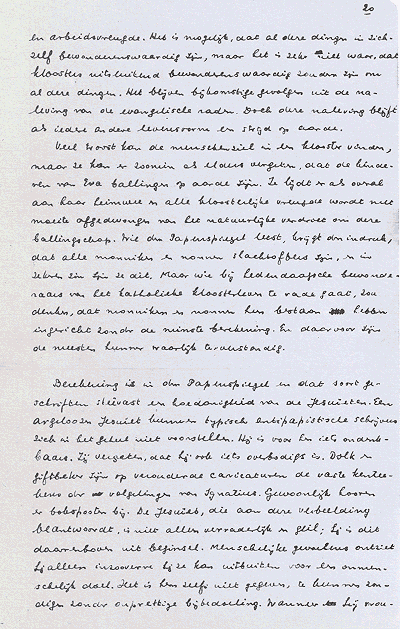 20
en arbeidsvreugde. Het is mogelijk, dat al deze dingen in zich-
zelf bewonderenswaardig zijn, maar het is zeker niet waar, dat
kloosters uitsluitend bewonderenswaardig zouden zijn om
al deze dingen. Het blijven bijkomstige gevolgen uit de na-
leving van de evangelische raden. Doch deze naleving blijft
als iedere andere levensvorm een strijd op aarde.
Veel troost kan de menschenziel in een klooster vinden,
maar ze kan er zoomin als elders vergeten, dat de kinde-
ren van Eva ballingen op aarde zijn. Ze lijdt er als overal
aan haar heimwee en alle kloosterlijke vreugde wordt met
moeite afgedwongen van het natuurlijke verdriet om deze
ballingschap. Wie den Papenspiegel leest, krijgt den indruk,
dat alle monniken en nonnen slachtoffers zijn, en in
zekeren zin zijn ze dit. Maar wie bij hedendaagsche bewonde-
raars van het katholieke kloosterleven te rade gaat, zou
denken, dat monniken en nonnen hun bestaan hebben
ingericht zonder de minste berekening. En daarvoor zijn
de meesten hunner waarlijk te verstandig.
Berekening is in den Papenspiegel en dat soort ge-
schriften steevast een hoedanigheid van de Jesuïeten. Een
argeloozen Jesuïet kunnen typisch antipapistische schrijvers
zich in het geheel niet voorstellen. Hij is voor hen iets ondenk-
baars. Zij vergeten, dat hij ook iets overbodigs is. Dolk en
giftbeker zijn op verouderde caricaturen de vaste kentee-
kens der volgelingen van Ignatius. Gewoonlijk hooren
er bokspooten bij. De Jesuïet, die aan deze verbeelding
beantwoordt, is niet alleen verraderlijk en geil; hij is dit
daarenboven uit beginsel. Menschelijke zwakheid ontziet
hij alleen inzooverre hij ze kan uitbuiten voor een onmen-
schelijk doel. Het is hem zelfs niet gegeven, te kunnen zon-
digen zonder onprettige bijbedoeling. Wanneer hij vrou-